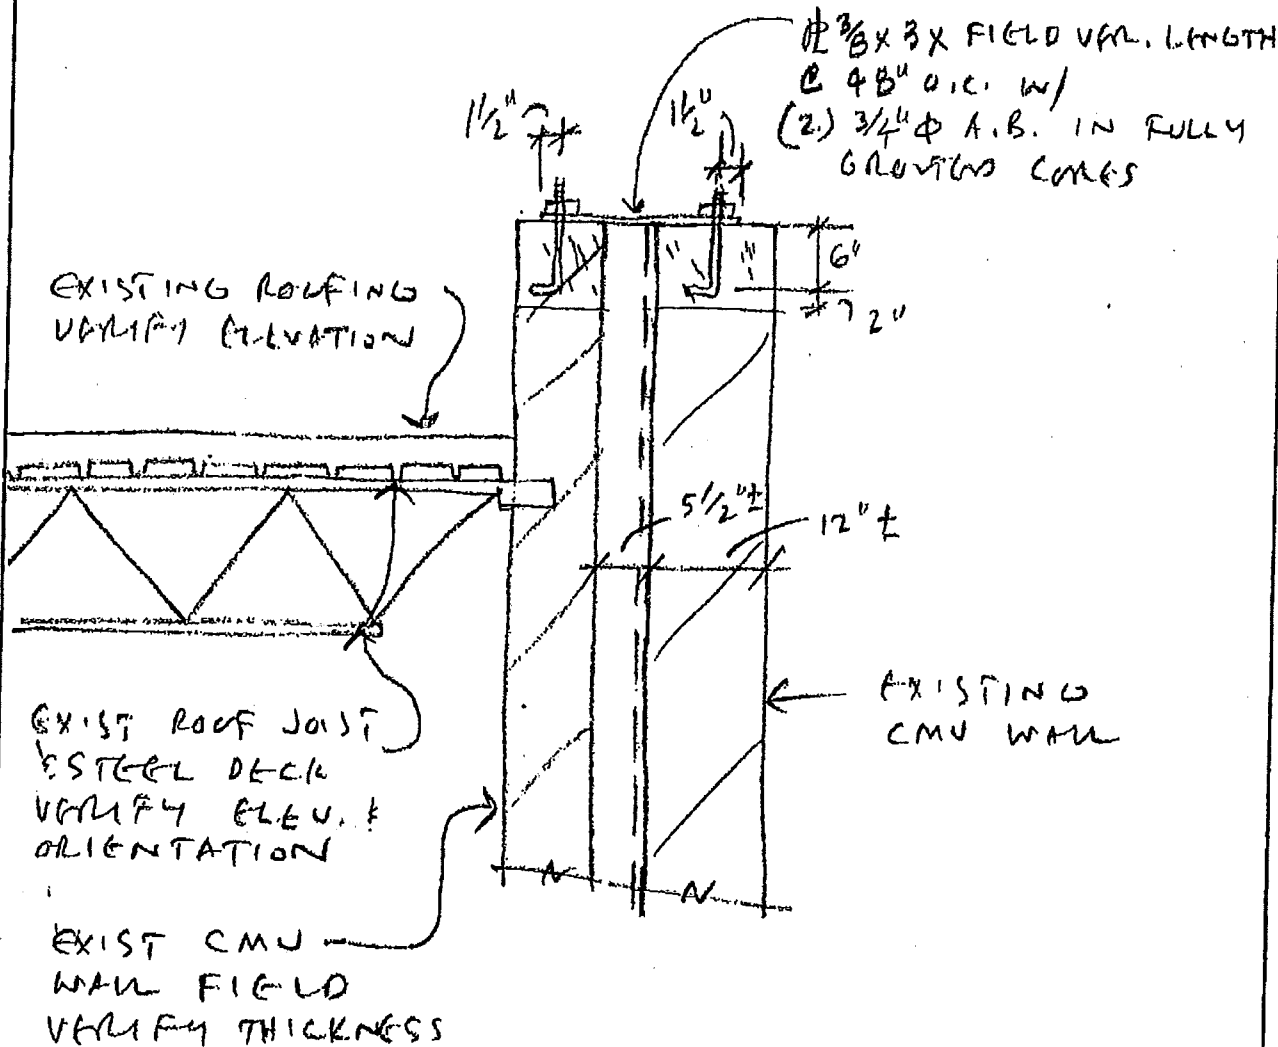 ℄ 3/8 X 3 X FIELD VER. LENGTH
@ 48" O.C. W/
(2.) 3/4" Φ A.B. IN FULLY
GROUTED CORES
1 1/2"
1 1/2"
6"
2"
EXISTING ROOFING
VERIFY ELEVATION
5 1/2" ±
12" ±
EXISTING
CMU WALL
EXIST ROOF JOIST
& STEEL DECK
VERIFY ELEV. &
ORIENTATION
EXIST CMU
WALL FIELD
VERIFY THICKNESS